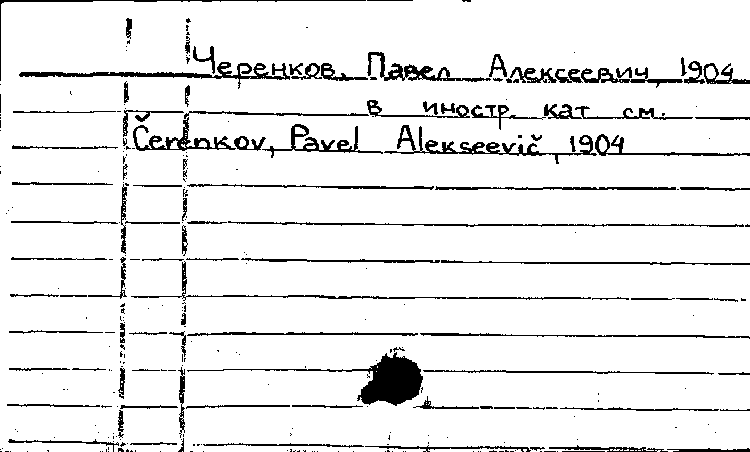 Черенков, Павел Алексеевич, 1904
в иностр. кат см.
Čerenkov, Pavel Alekseevič, 1904